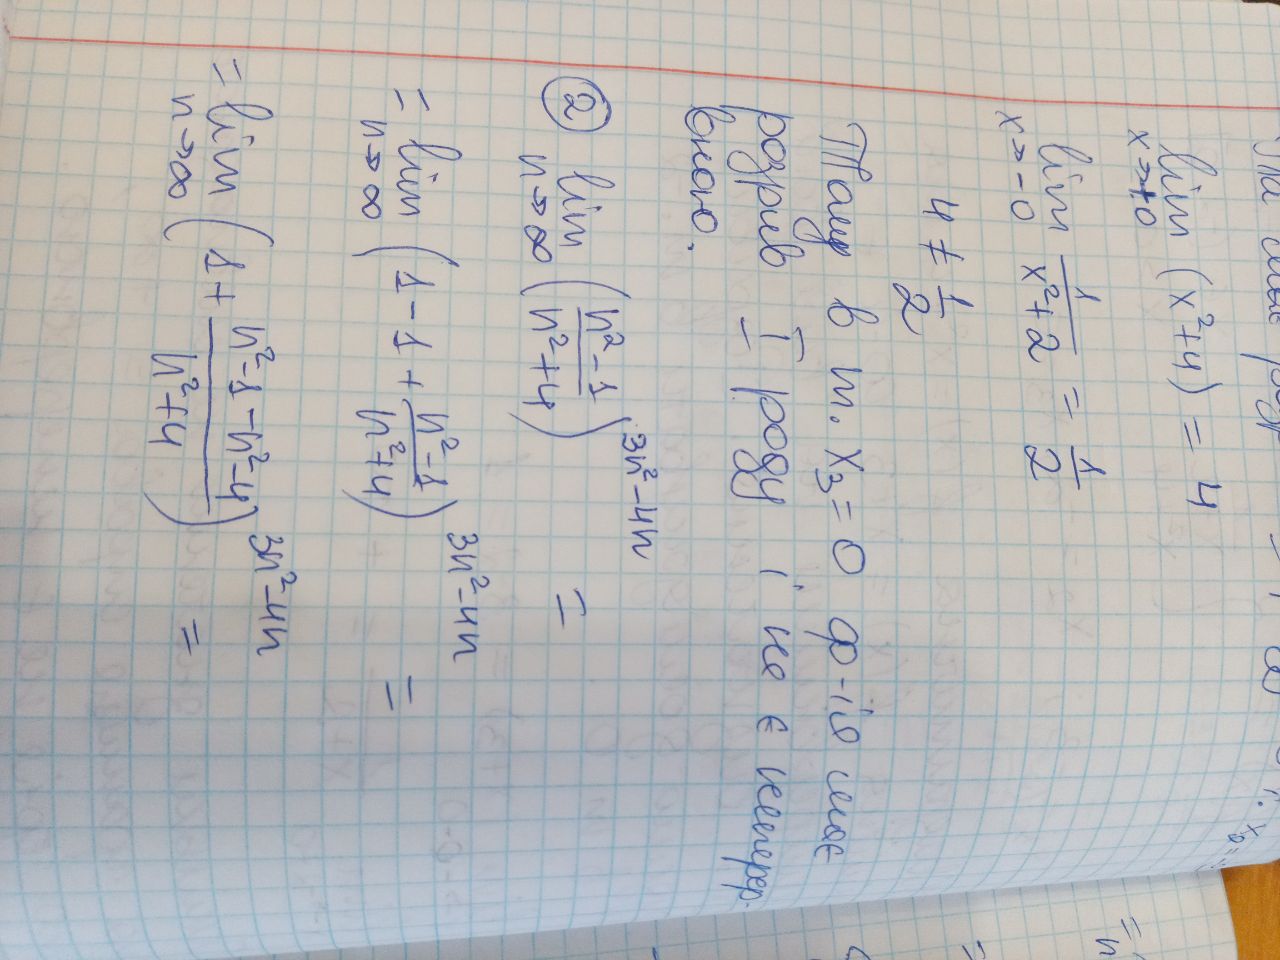 lim (x²+4) = 4
x→+0
lim 1/(x²+2) = 1/2
x→-0
4 ≠ 1/2
Тому в т. x₃=0 ф-ія має
розрив I роду і не є непер.
вною.
② lim ((n²-1)/(n²+4))^(3n²-4n) =
n→∞
= lim (1-1+(n²-1)/(n²+4))^(3n²-4n) =
n→∞
= lim (1+(n²-1-n²-4)/(n²+4))^(3n²-4n) =
n→∞